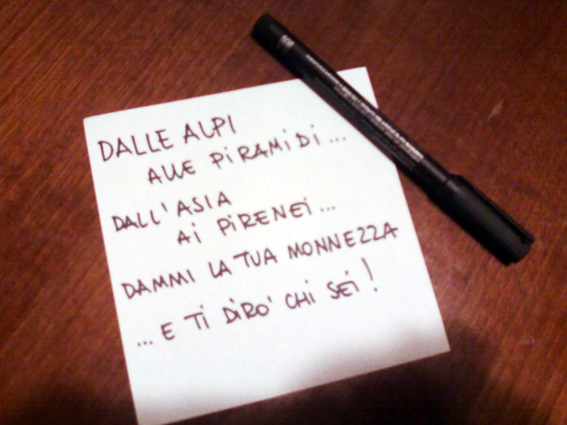 DALLE ALPI
ALLE PiRAMiDi...
DALL'ASIA
Ai PiRENEi...
DAMMI LA TUA MONNEZZA
... E Ti DiRO' CHi SEi!